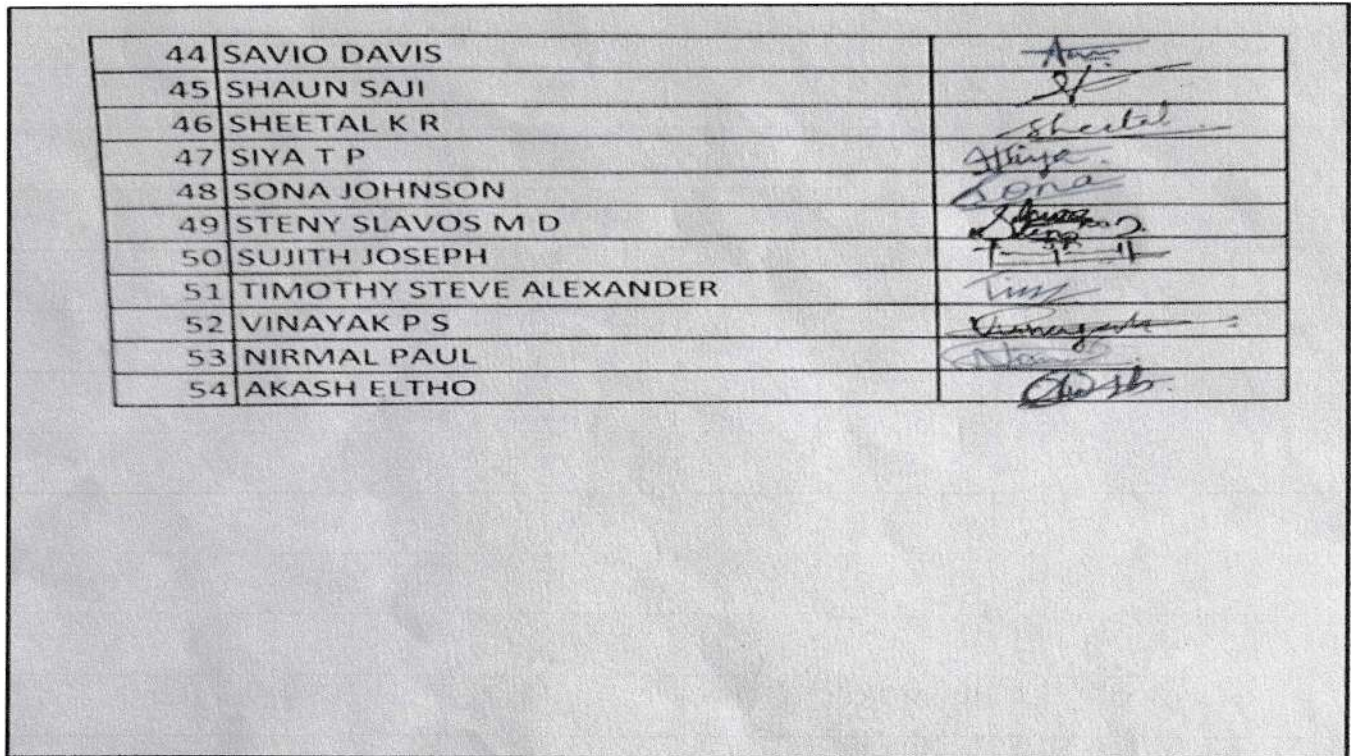 44 SAVIO DAVIS
45 SHAUN SAJI
46 SHEETAL K R Sheetal
47 SIYA T P
48 SONA JOHNSON Sona
49 STENY SLAVOS M D
50 SUJITH JOSEPH
51 TIMOTHY STEVE ALEXANDER
52 VINAYAK P S
53 NIRMAL PAUL
54 AKASH ELTHO